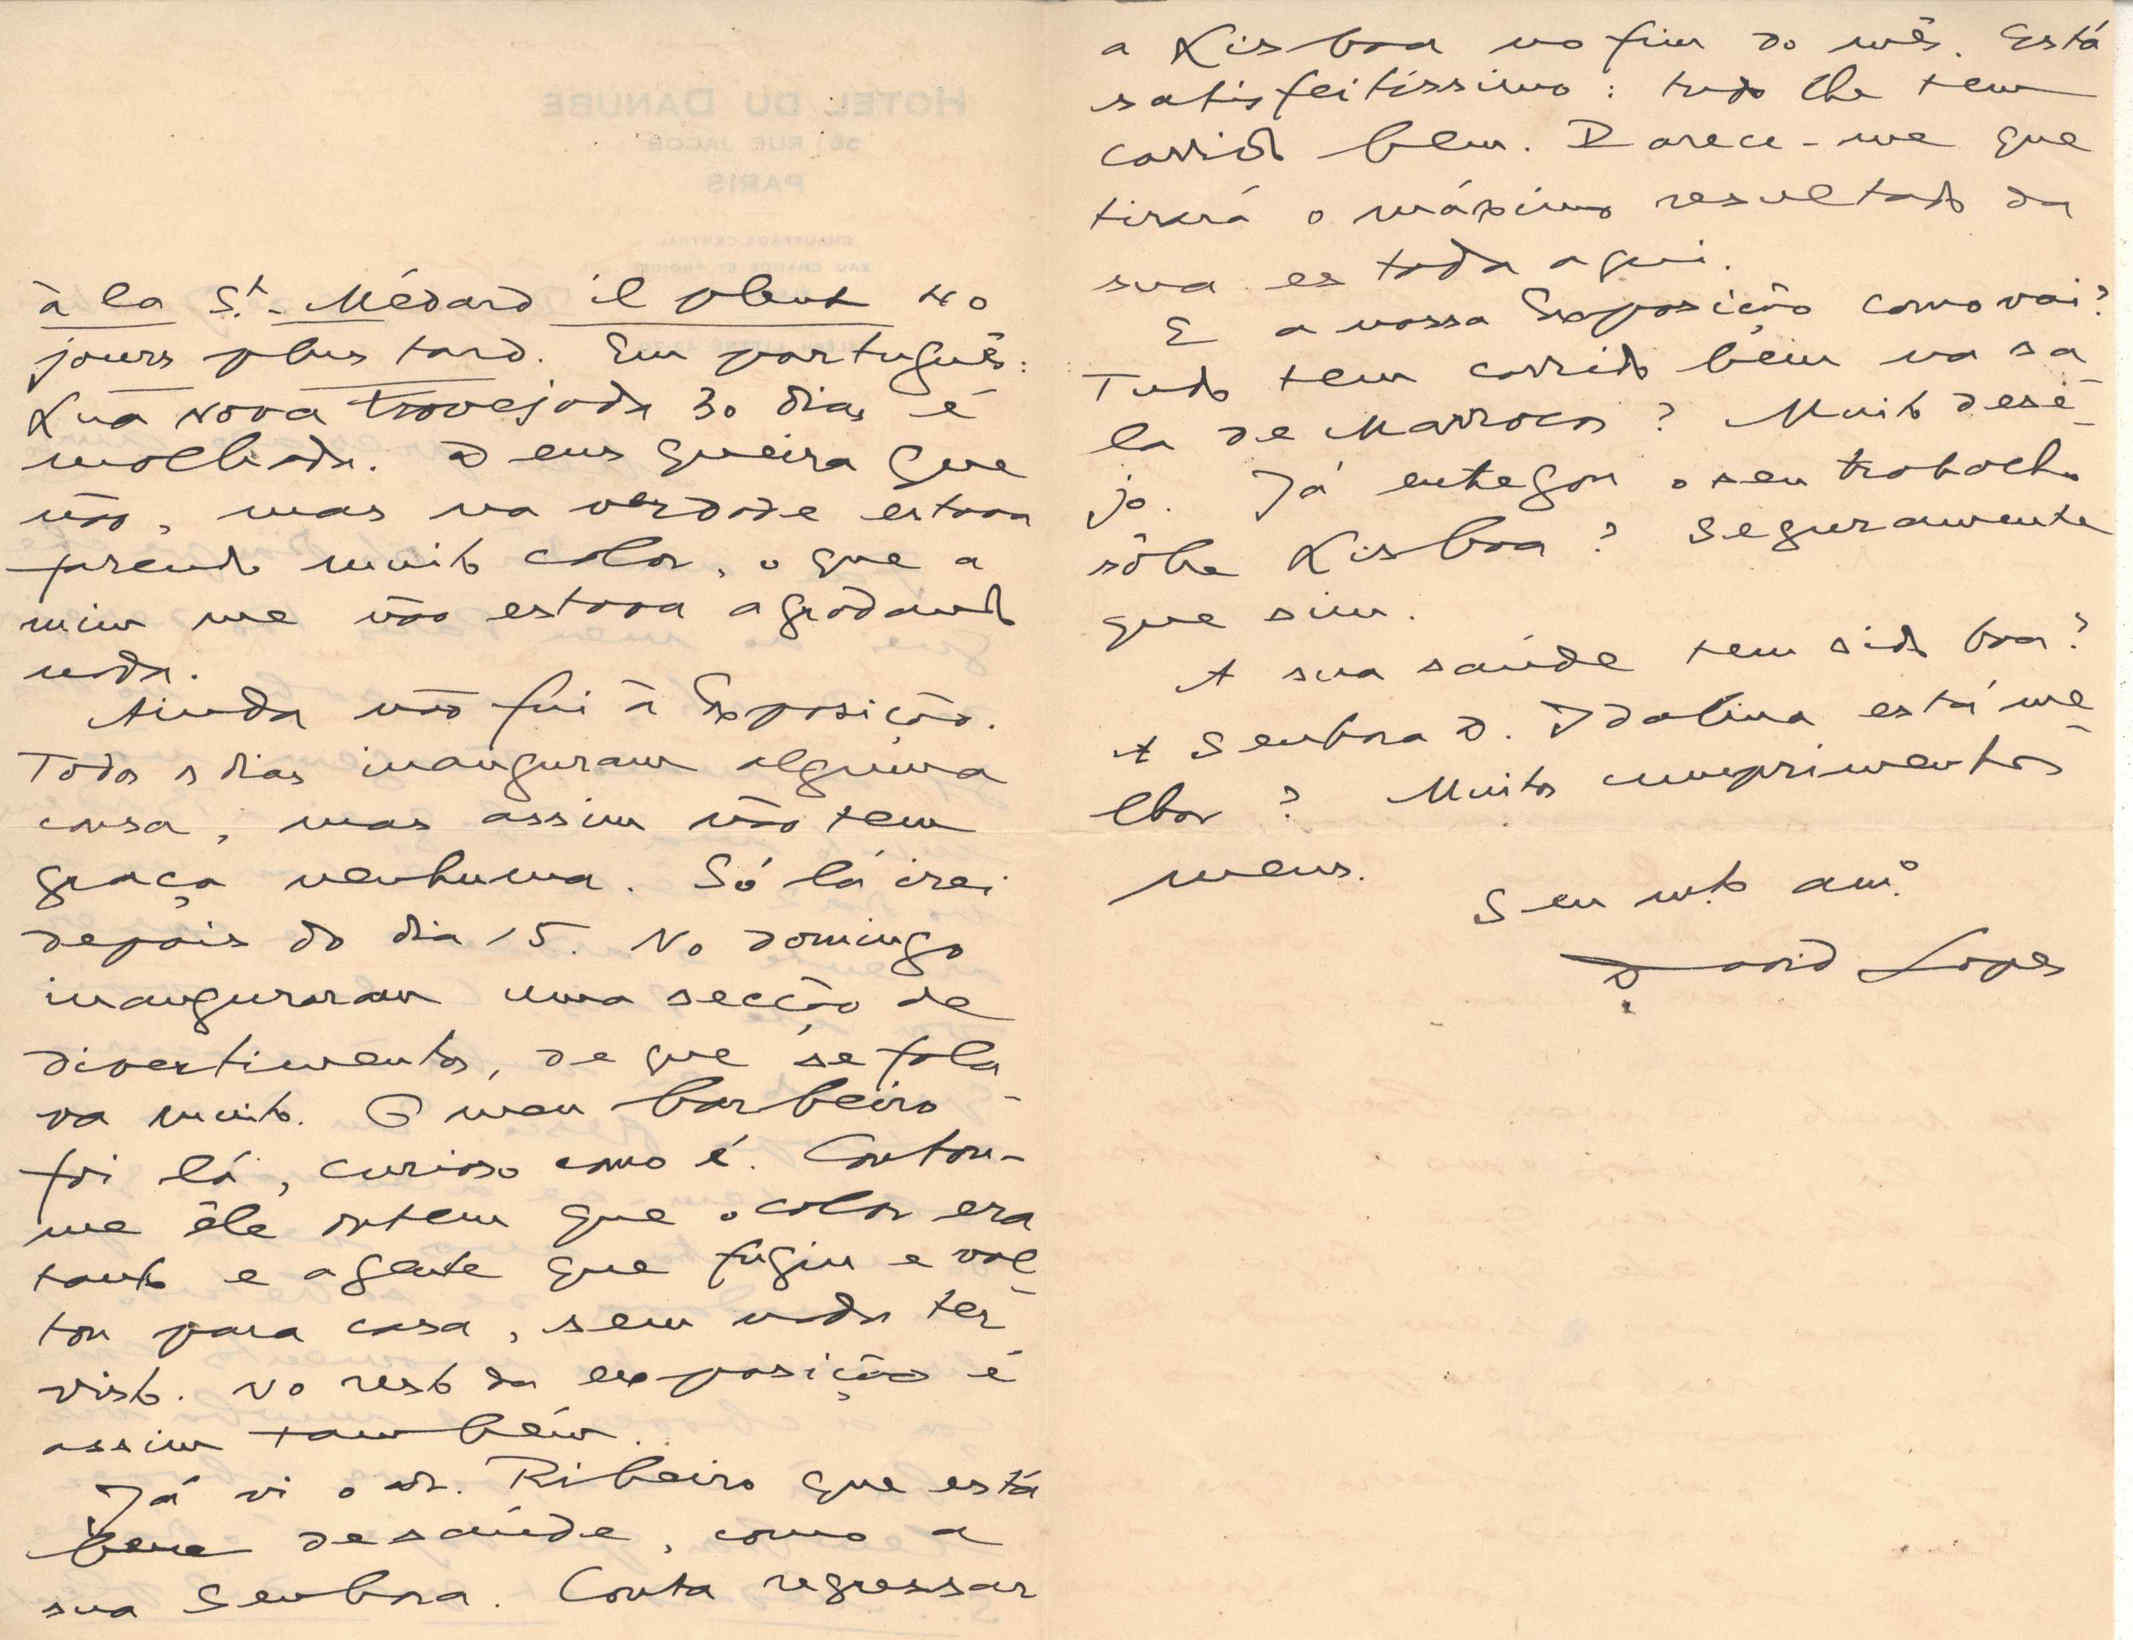 à la St. Médard il pleut 40
jours plus tard. Em português:
Lua nova trovejada 30 dias é
molhada. Deus queira que
não, mas na verdade estava
fazendo muito calor, o que a
mim me não estava agradando
nada.
Ainda não fui à Exposição.
Todos os dias inauguram alguma
cousa, mas assim não tem
graça nenhuma. Só lá irei
depois do dia 15. No domingo
inauguraram uma secção de
divertimentos, de que se fala-
va muito. O meu barbeiro
foi lá, curioso como é. Contou-
me êle ontem que o calor era
tanto e a gente que fugiu e vol-
tou para casa, sem nada ter
visto. No resto da exposição é
assim também.
Já vi o dr. Ribeiro que está
bem de saúde, como a
sua Senhora. Conta regressar
a Lisboa no fim do mês. Está
satisfeitíssimo: tudo lhe tem
corrido bem. Parece-me que
tirará o máximo resultado da
sua estada aqui.
E a nossa Exposição como vai?
Tudo tem corrido bem na sa
la de Marrocos? Muito dese-
jo. Já entregou o seu trabalho
sôbre Lisboa? Seguramente
que sim.
A sua saúde tem sido boa?
A Senhora D. Idalina está me-
lhor? Muitos cumprimentos
meus.
Seu mto amº
David Lopes
HOTEL DU DANUBE
58, RUE JACOB
PARIS
CHAUFFAGE CENTRAL
EAU CHAUDE ET FROIDE